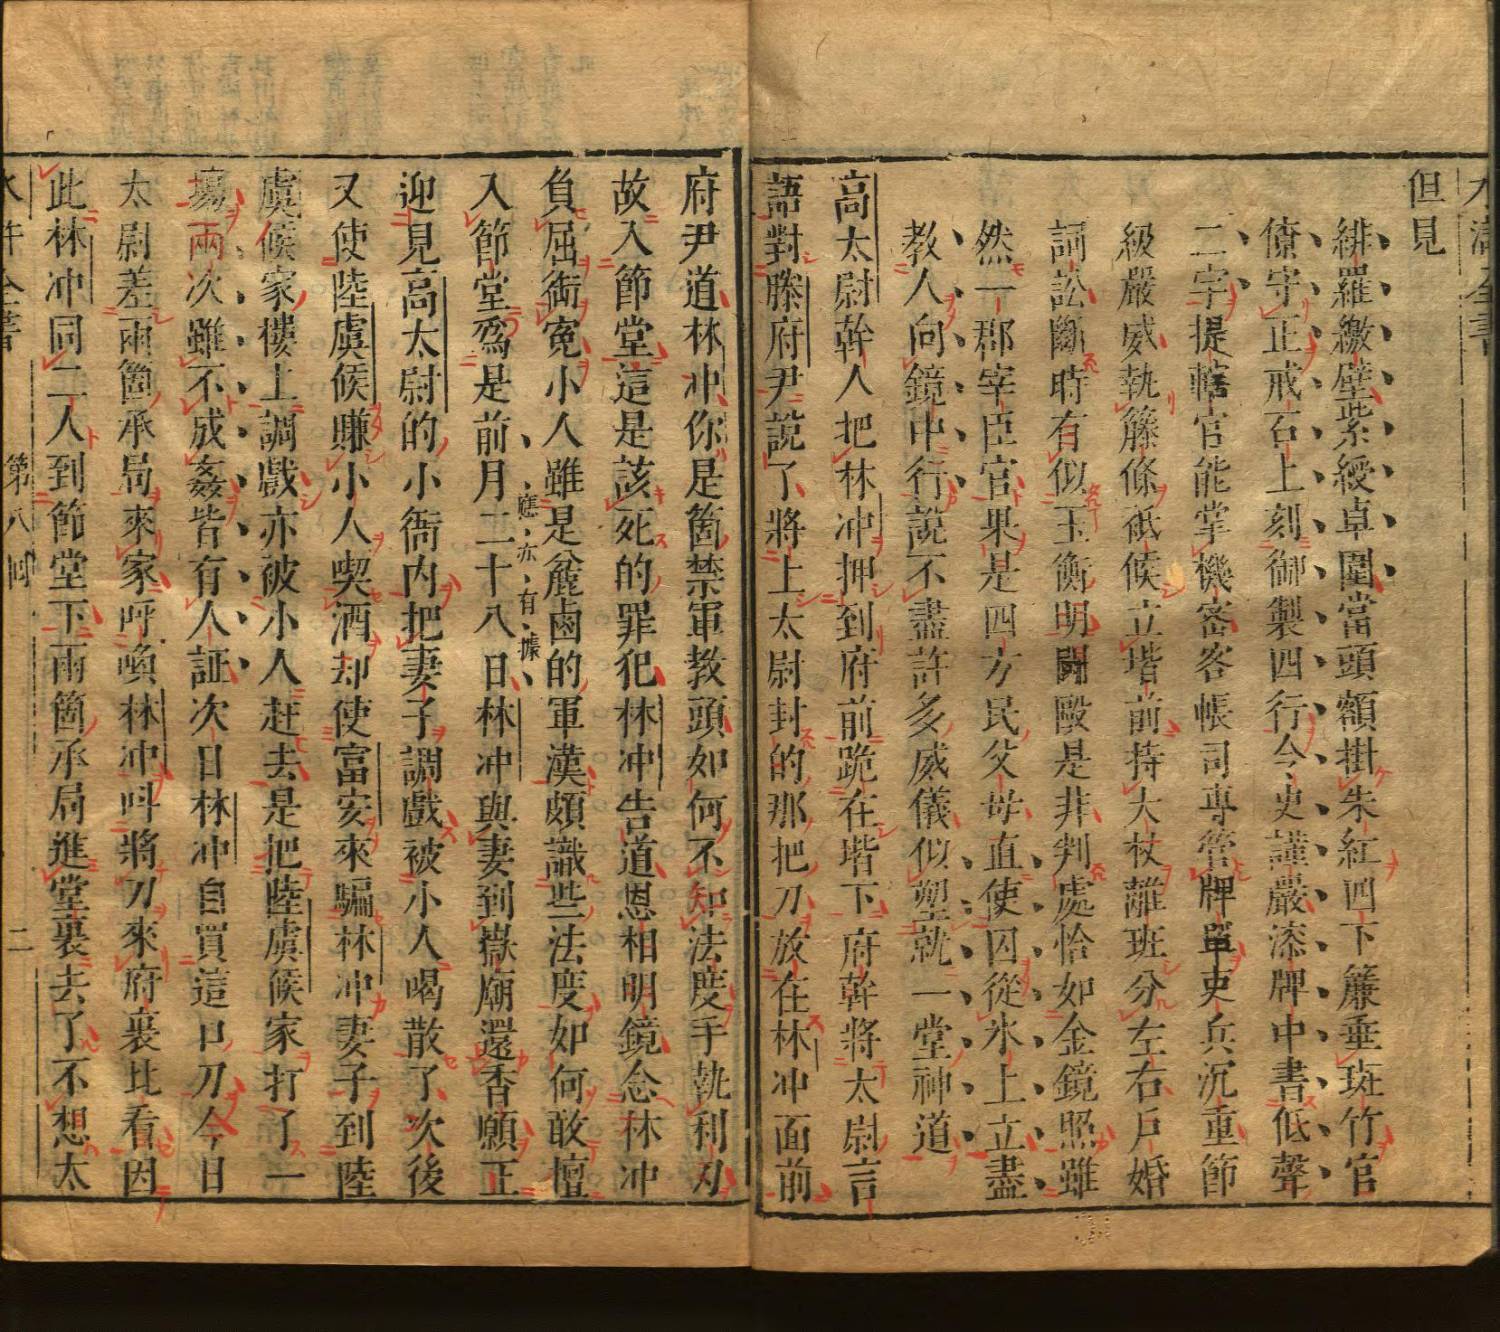 水滸全書
但見
緋羅繳壁紫綬卓圍當頭額掛朱紅四下簾垂斑竹官
僚守正戒石上刻御製四行令史謹嚴漆牌中書低聲
二字提轄官能掌機密客帳司專管牌單吏兵沉重節
級嚴威執藤條祗候立堦前持大杖離班分左右戶婚
詞訟斷時有似玉衡明鬭毆是非判處恰如金鏡照雖
然一郡宰臣官果是四方民父母直使囚從氷上立盡
教人向鏡中行說不盡許多威儀似塑就一堂神道
高太尉幹人把林冲押到府前跪在堦下府幹將太尉言
語對滕府尹說了將上太尉封的那把刀放在林冲面前
府尹道林冲你是箇禁軍教頭如何不知法度手執利刃
故入節堂這是該死的罪犯林冲告道恩相明鏡念林冲
負屈銜寃小人雖是麄鹵的軍漢頗識些法度如何敢擅
應亦有據
入節堂爲是前月二十八日林冲與妻到嶽廟還香願正
迎見高太尉的小衙內把妻子調戲被小人喝散了次後
又使陸虞候賺小人喫酒却使富安來騙林冲妻子到陸
虞候家樓上調戲亦被小人赶去是把陸虞候家打了一
塲兩次雖不成姦皆有人証次日林冲自買這口刀今日
太尉差兩箇承局來家呼喚林冲呌將刀來府裏比看因
此林冲同二人到節堂下兩箇承局進堂裏去了不想太
水滸全書 第八囘 二